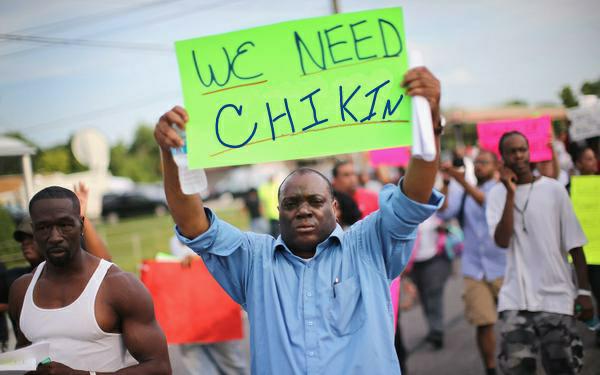 WE NEED
CHIKIN